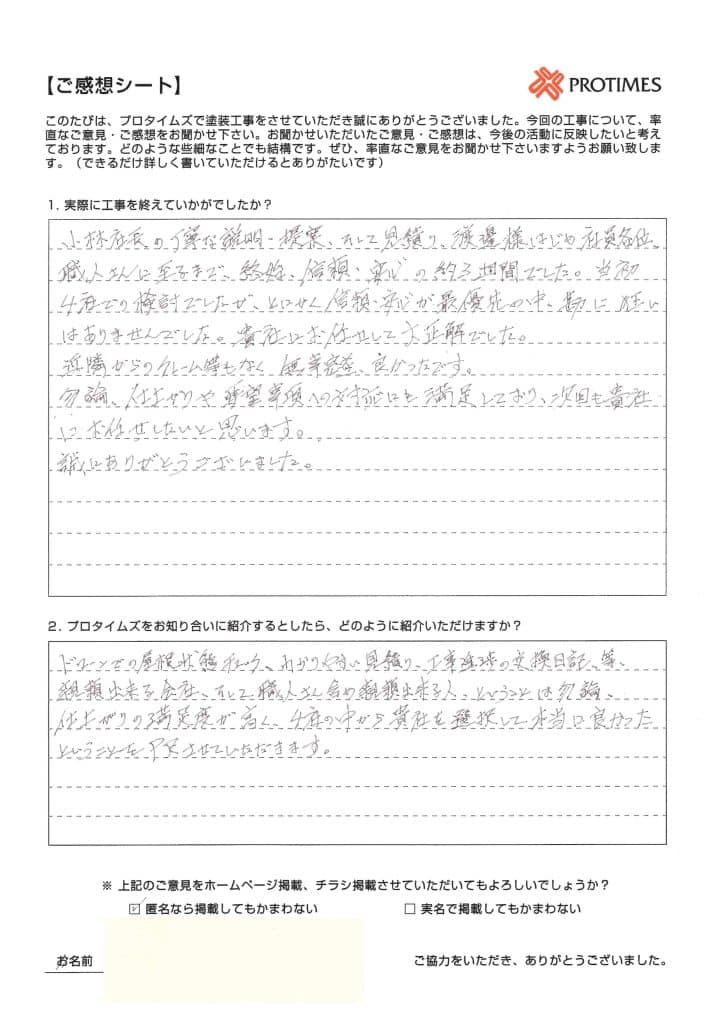 【ご感想シート】
PROTIMES
このたびは、プロタイムズで塗装工事をさせていただき誠にありがとうございました。今回の工事について、率
直なご意見・ご感想をお聞かせ下さい。お聞かせいただいたご意見・ご感想は、今後の活動に反映したいと考え
ております。どのような些細なことでも結構です。ぜひ、率直なご意見をお聞かせ下さいますようお願い致しま
す。（できるだけ詳しく書いていただけるとありがたいです）
1. 実際に工事を終えていかがでしたか？
小林社長の丁寧な説明・提案、そして見積り、渡邉様はじめ社員各位、
職人さんに至るまで、終始、信頼・安心の約3週間でした。当初
4社での検討でしたが、とにかく信頼・安心が最優先の中、勘に狂い
はありませんでした。貴社にお任せして大正解でした。
近隣からのクレーム等もなく無事完了、良かったです。
勿論、仕上がりや要望事項への対応にも満足しており、次回も貴社
にお任せしたいと思います。
誠にありがとうございました。
2. プロタイムズをお知り合いに紹介するとしたら、どのように紹介いただけますか？
ドローンでの屋根状態チェック、わかりやすい見積り、工事進捗の交換日記、等、
信頼出来る会社、そして職人さん含め信頼出来る人、ということは勿論、
仕上がりの満足度が高く、4社の中から貴社を選択して本当に良かった
ということを PRさせていただきます。
※ 上記のご意見をホームページ掲載、チラシ掲載させていただいてもよろしいでしょうか？
☑ 匿名なら掲載してもかまわない
□ 実名で掲載してもかまわない
お名前
ご協力をいただき、ありがとうございました。